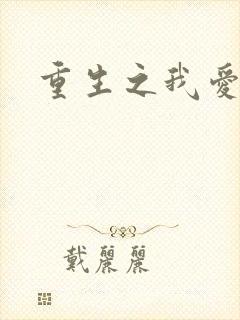 重生之我愛
戴麗麗